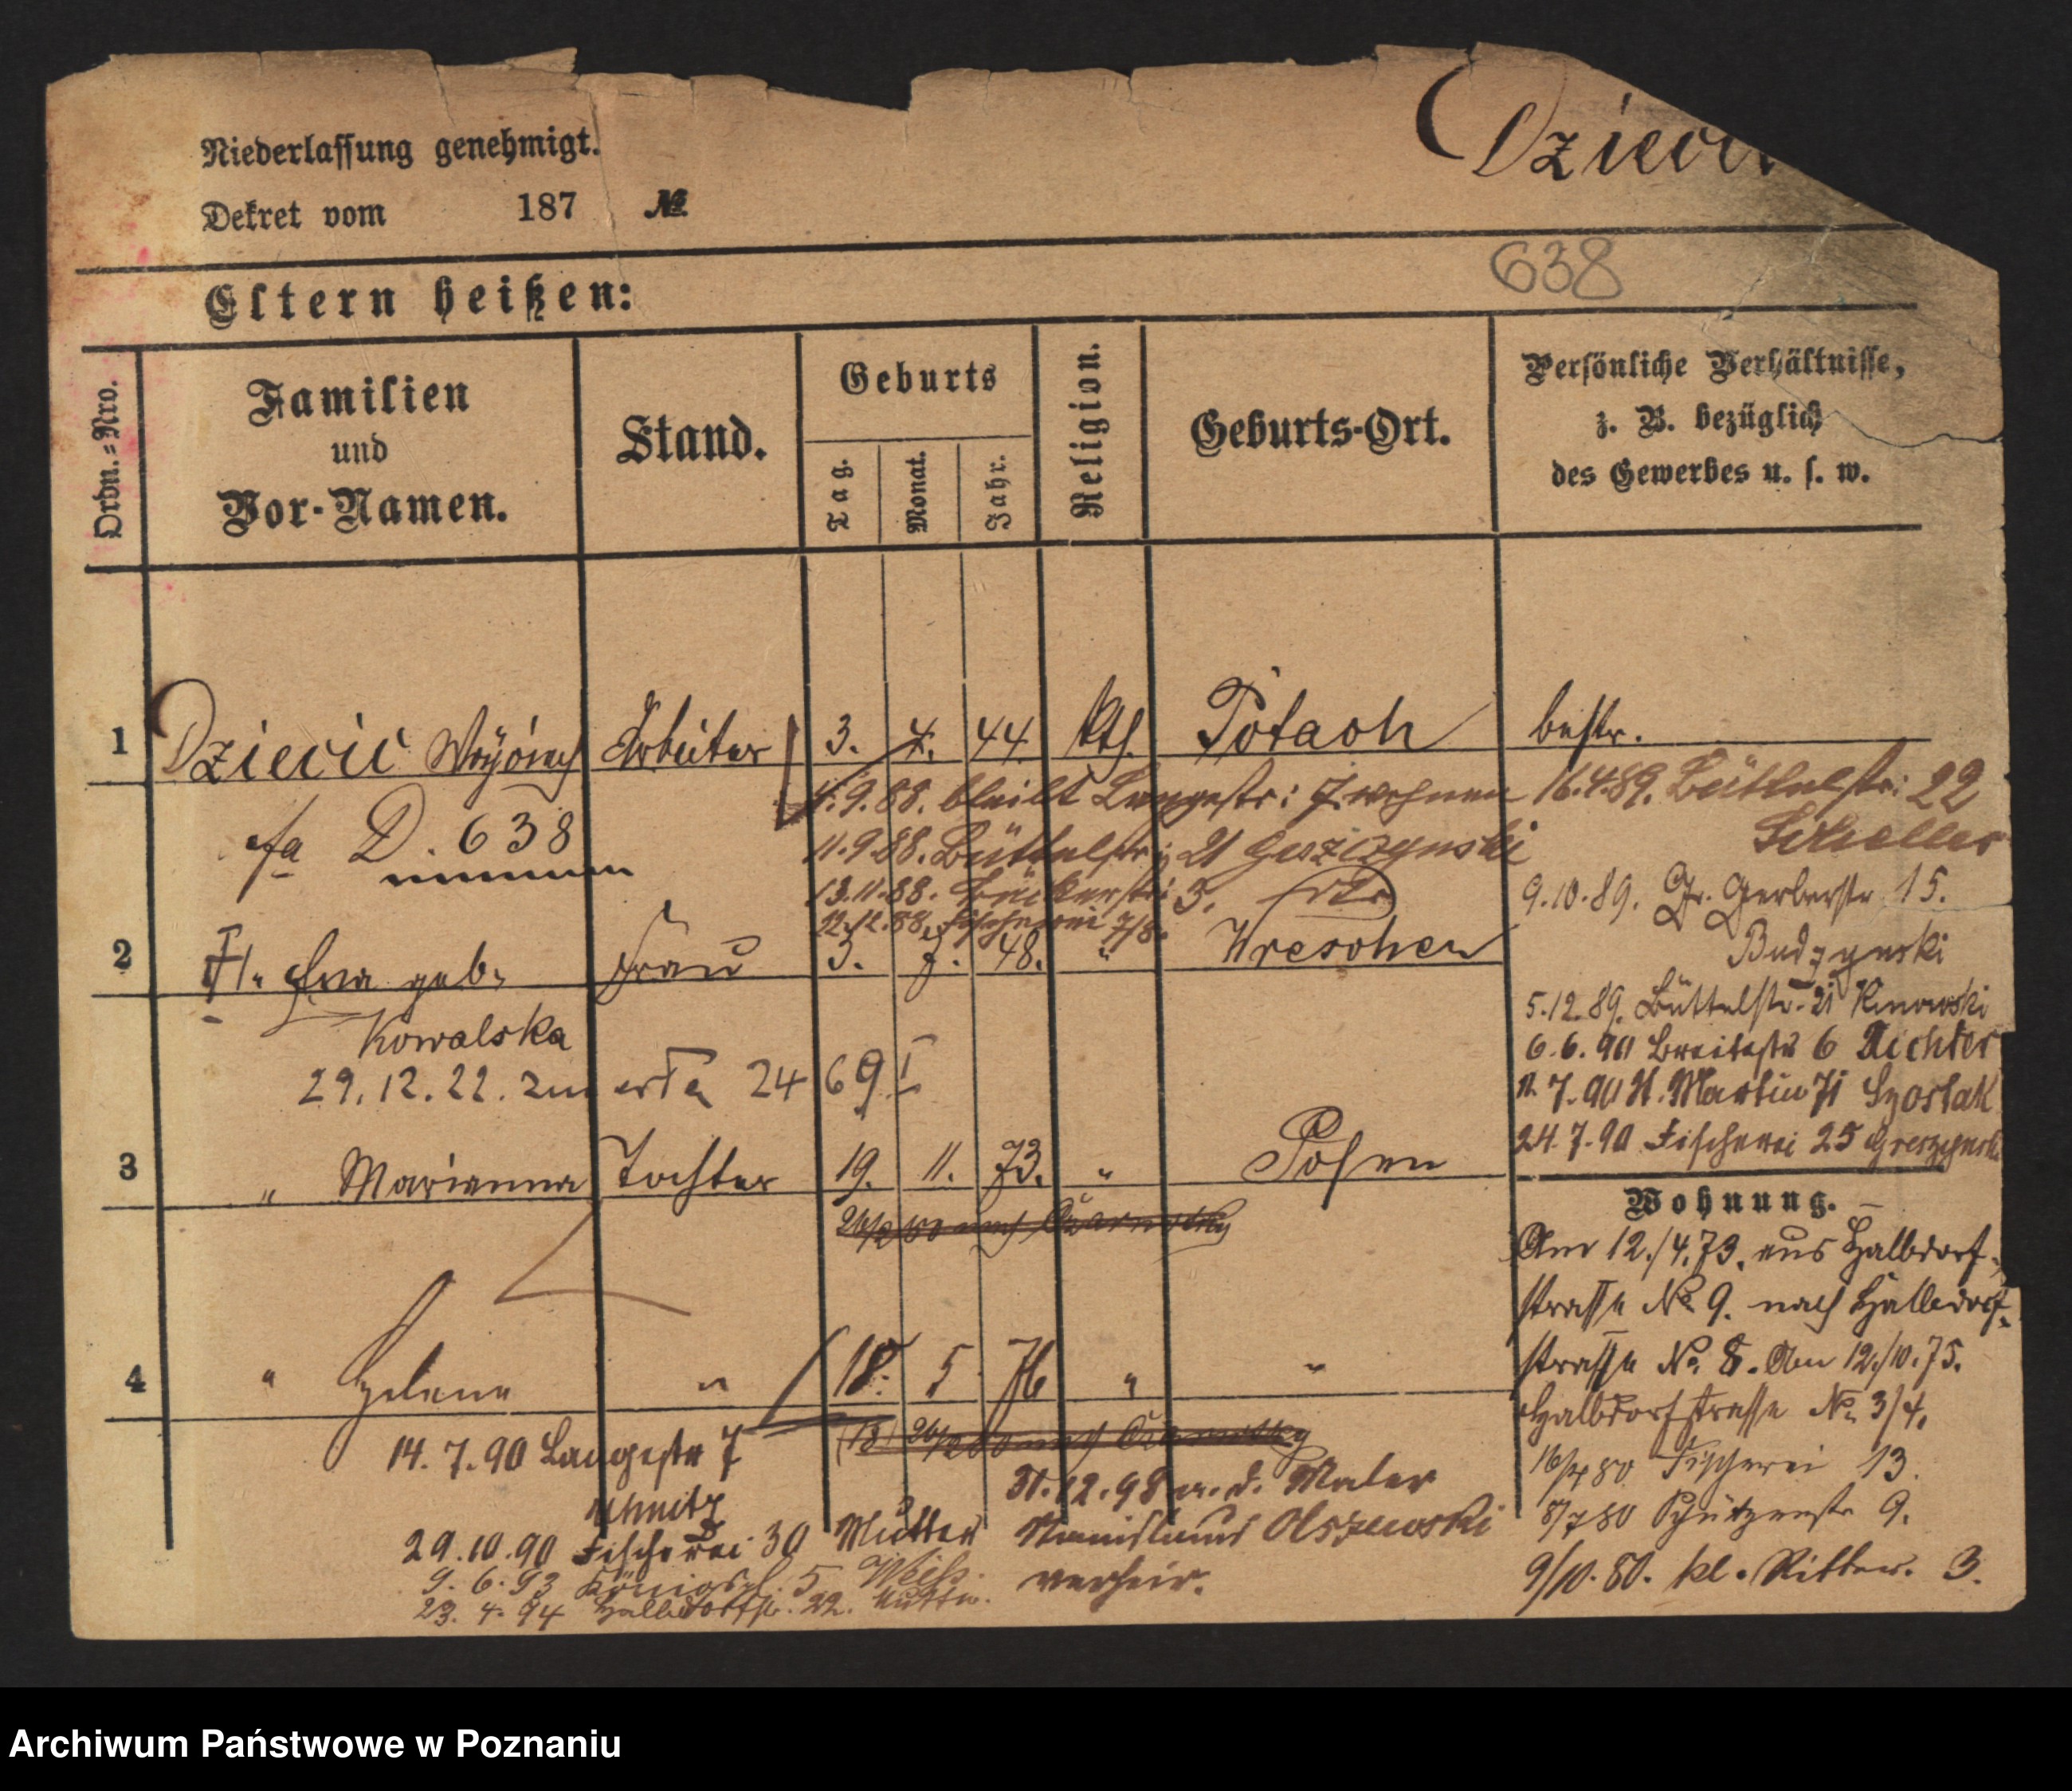 Niederlassung genehmigt.
Dekret vom 187 №
Dziecic
638
Eltern heißen:
Ordn.=Nro.
Familien und Vor-Namen.
Stand.
Geburts
Tag.
Monat.
Jahr.
Religion.
Geburts-Ort.
Persönliche Verhältnisse,
z. B. bezüglich
des Gewerbes u. s. w.
1 Dziecic Arbeiter 3. 4. 44. kth. bestr.
4.9.88. bleibt Langestr: 7. wohnen 16.4.89. Büttelstr: 22
fa D. 638
11.9.88. Büttelstr: 21
13.11.88. 3.
12.12.88. Fischerei 7/8.
9.10.89. Gr. Gerberstr. 15.
Budzynski
2 geb. Frau 3. 7. 48. " Wreschen
Kowalska
5.12.89. Büttelstr. 21
6.6.90 Breitestr 6 Richter
29.12.22. 24 69 I
11.7.90 St. Martin 71 Szostak
24.7.90 Fischerei 25
3 " Marianna Tochter 19. 11. 73. " Posen
Wohnung.
Am 12./4.73. aus Halbdorf-
strasse No 9. nach Halbdorf-
strasse No. 8. Am 12./10.75.
Halbdorfstrasse No. 3/4.
4 " Helena " 18. 5. 76 " "
14.7.90 Langestr 7
16/4 80 Fischerei 13.
31.12.98 a. d. Maler
8/7 80 Schützenstr 9.
29.10.90 Fischerei 30 Mutter
Stanislaus Olszewski
verheir.
9/10.80. kl. Ritter. 3.
9.6.93 Königspl. 5
23.4.94 Halbdorfstr. 22. Mutter.
Archiwum Państwowe w Poznaniu